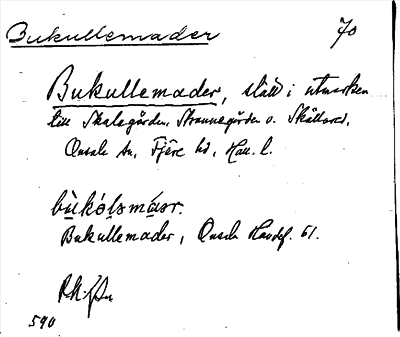 Bukullemader 70
Bukullemader, slätt i utmarken
till Skalegården, Strannegården o. Skällared,
Onsala sn, Fjäre hd, Hall. l.
bùkólsmásr.
Bukullemader, Onsala Handl. 61.
590